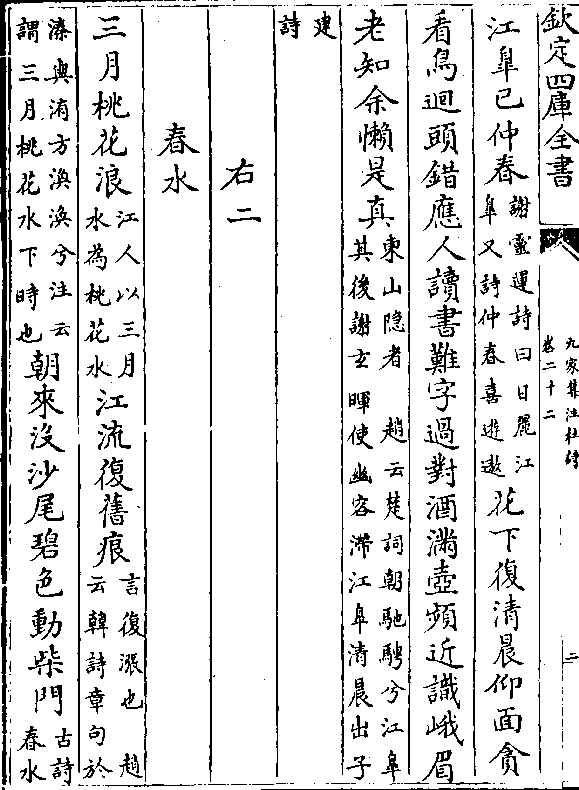 欽定四庫全書
九家集注杜詩
卷二十二
二
江臯已仲春謝靈運詩曰日麗江
臯又詩仲春喜遊遨花下復清晨仰面貪
看鳥迴頭錯應人讀書難字過對酒滿壺頻近識峨眉
老知余懶是真東山隐者趙云楚詞朝馳騁兮江臯
其後謝玄暉使幽客滯江臯清晨出子
建
詩
右二
春水
三月桃花浪江人以三月
水為桃花水江流復舊痕言復漲也趙
云韓詩章句於
溱與洧方渙渙兮注云
謂三月桃花水下時也朝來沒沙尾碧色動柴門古詩
春水